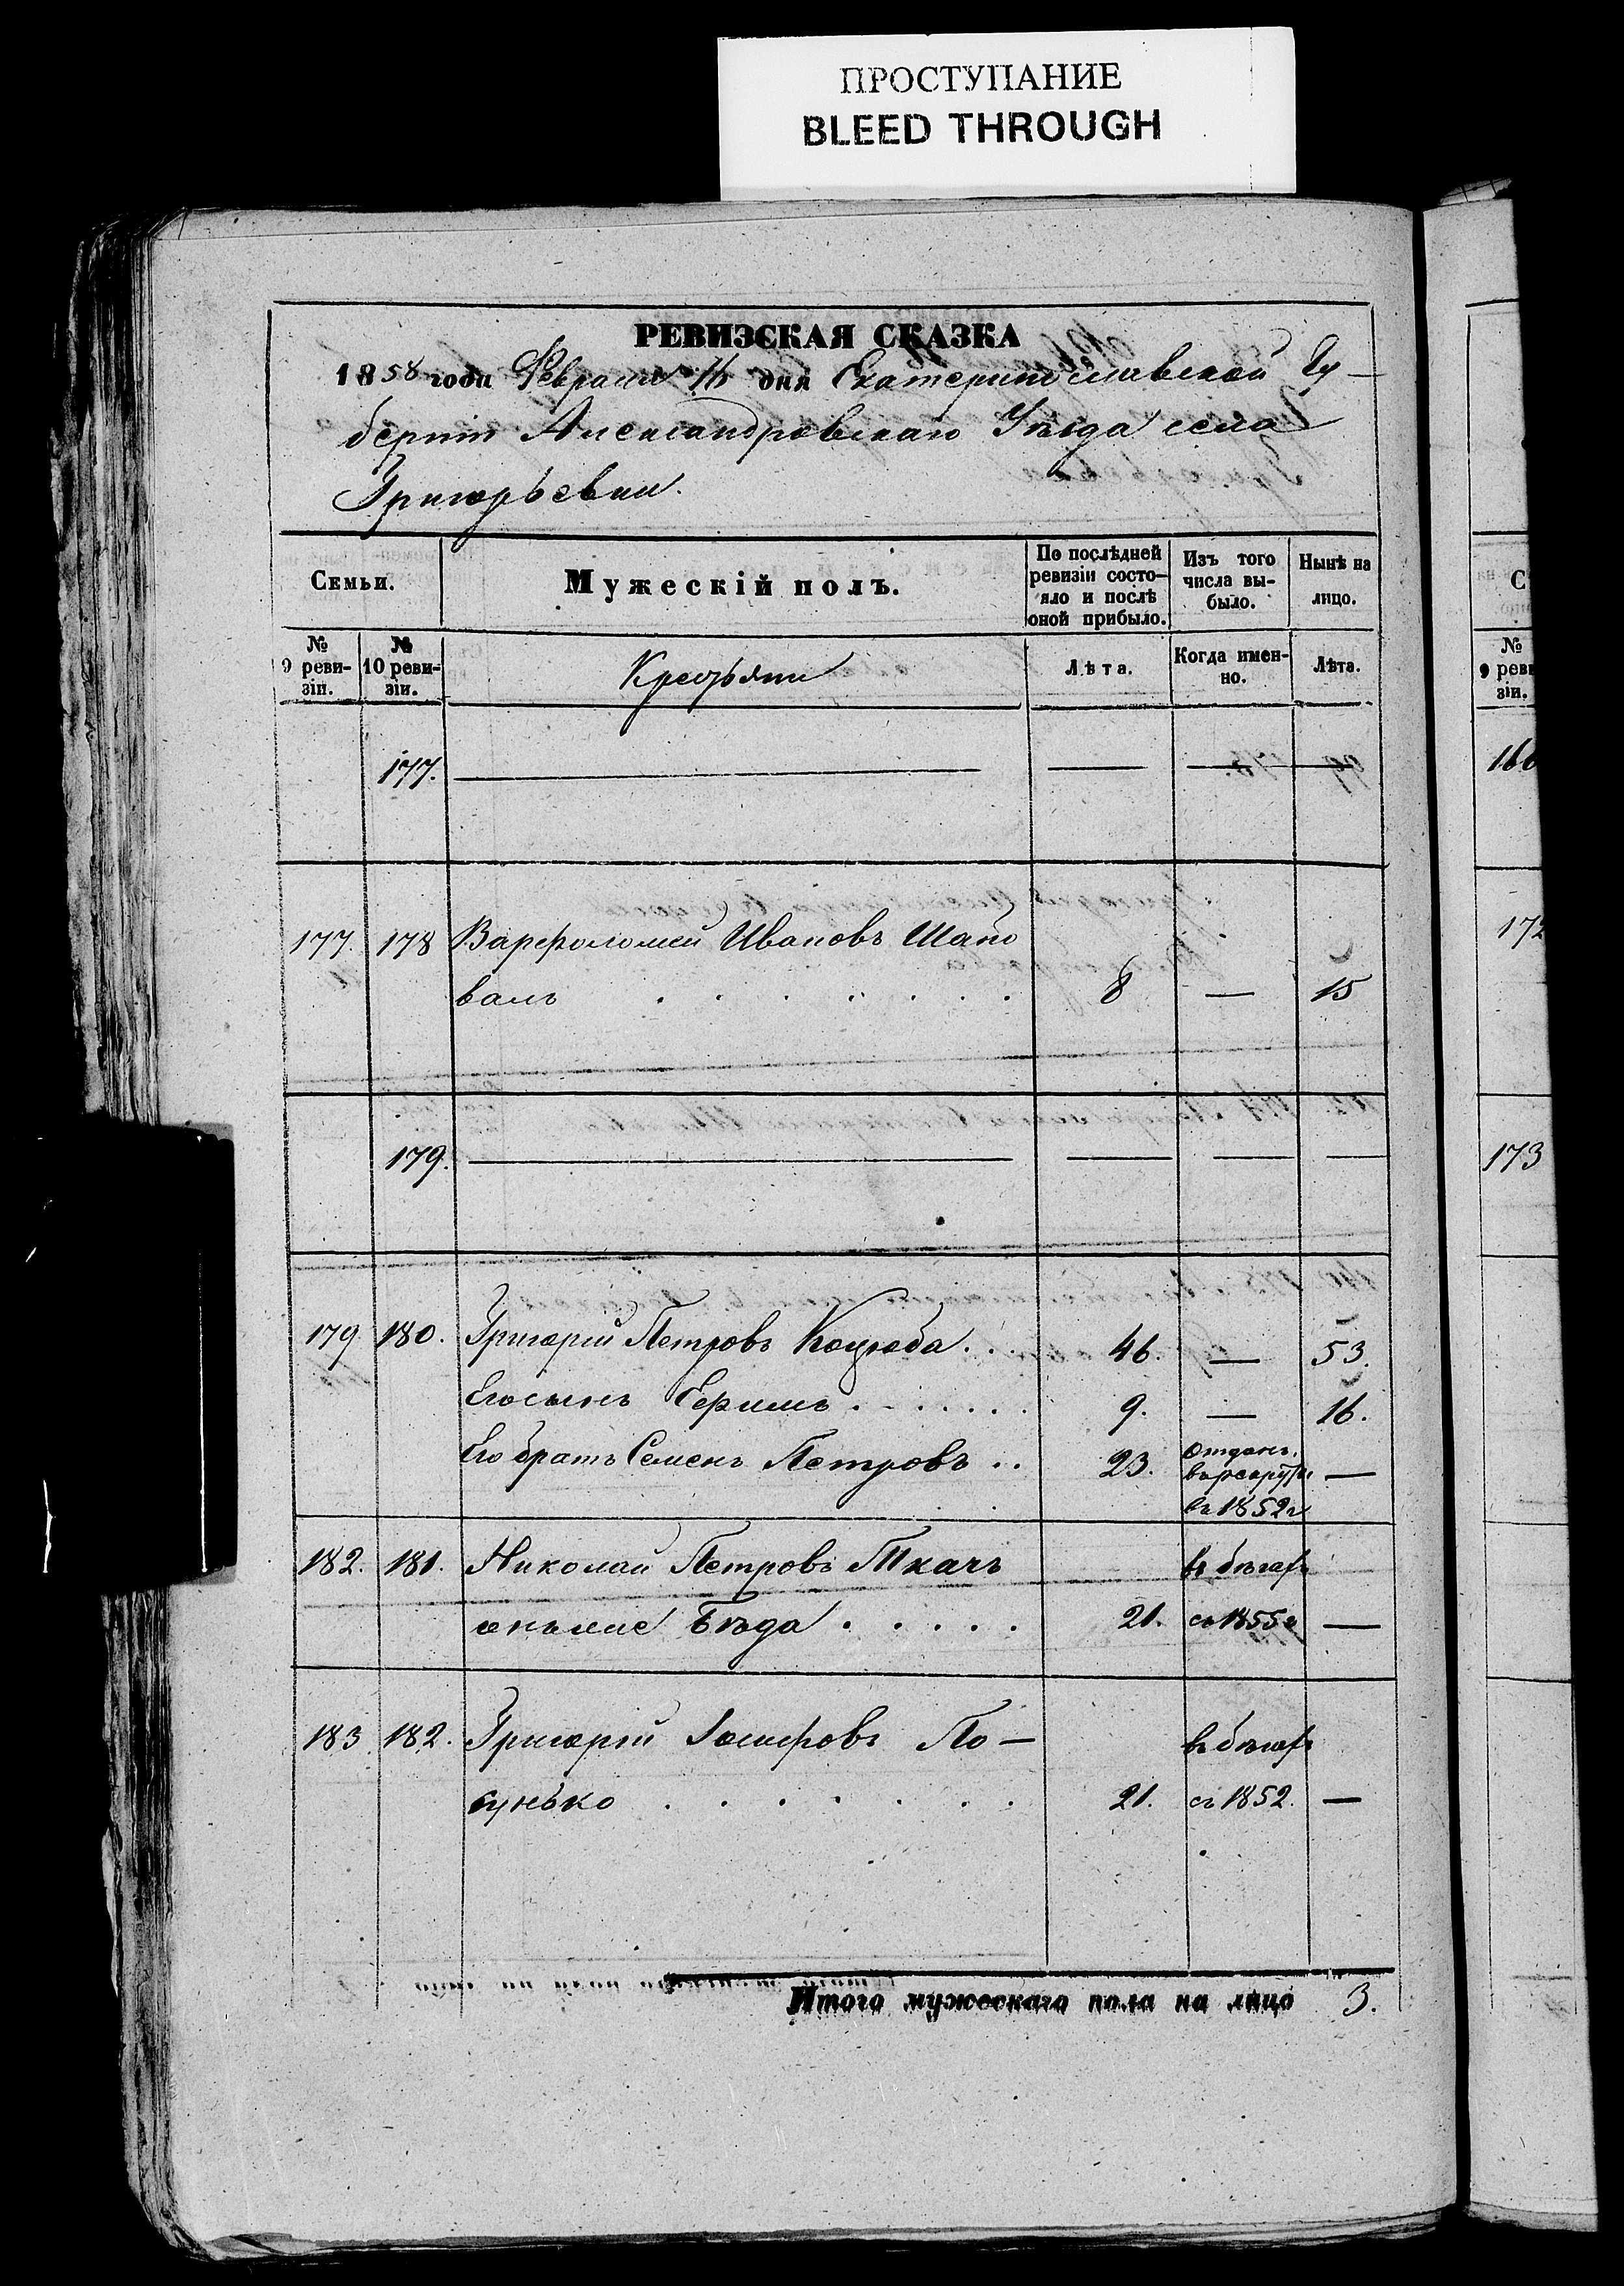 ПРОСТУПАНИЕ
BLEED THROUGH
РЕВИЗСКАЯ СКАЗКА
1858 года Февраля 16 дня Екатеринославской Гу-
берніи Александровскаго Уѣзда села
Григорьевки.
Семьи. Мужескій полъ. По послѣдней ревизіи состо-яло и послѣ оной прибыло. Изъ того числа вы-было. Нынѣ на лицо.
№ 9 реви-зіи. № 10 реви-зіи. Крестьяне Лѣта. Когда имен-но. Лѣта.
177. — — — —
177. 178 Варфоломей Ивановъ Шапо
валъ . . . . . . . 8 — 15
179. — — — —
179 180. Григорій Петровъ Коцюба . . 46. — 53.
Его сынъ Ефимъ . . . . . . 9. — 16.
Его братъ Семенъ Петровъ . . 23. Отданъ. —
въ рекруты
въ 1852 г
182. 181. Николай Петровъ Ткачъ въ бѣгах
онъ же Бѣда . . . . . 21. съ 1855 г —
183. 182. Григорій Іосифовъ По- въ бѣгах
сунько . . . . . . . 21. съ 1852. —
Итого мужескаго пола на лицо 3.
№ 9 реви зіи.
172
173